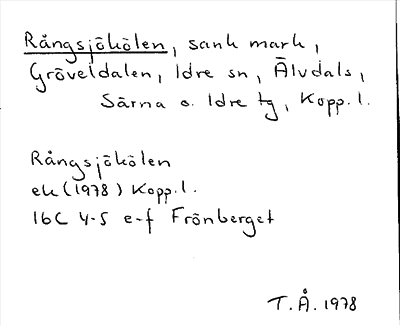 Rångsjökölen, sank mark,
Gröveldalen, Idre sn, Älvdals,
Särna o. Idre tg, Kopp. l.
Rångsjökölen
ek (1978) Kopp. l.
16C 4-5 e-f Frönberget
T.Å. 1978